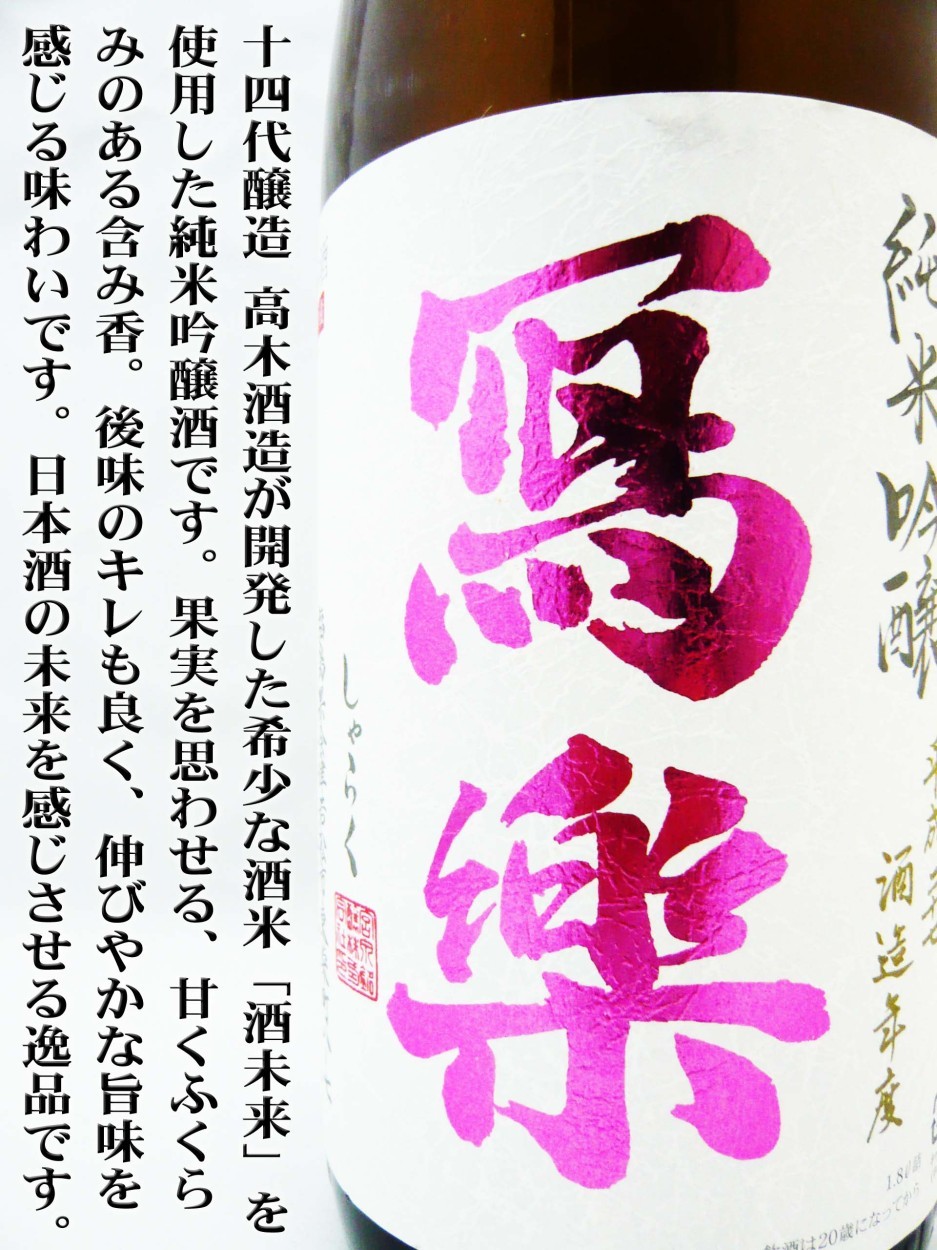 十四代醸造 高木酒造が開発した希少な酒米「酒未来」を
使用した純米吟醸酒です。果実を思わせる、甘くふくら
みのある含み香。後味のキレも良く、伸びやかな旨味を
感じる味わいです。日本酒の未来を感じさせる逸品です。
純米吟醸
酒造年度
寫樂
しゃらく
1.8ℓ詰
飲酒は20歳になってから